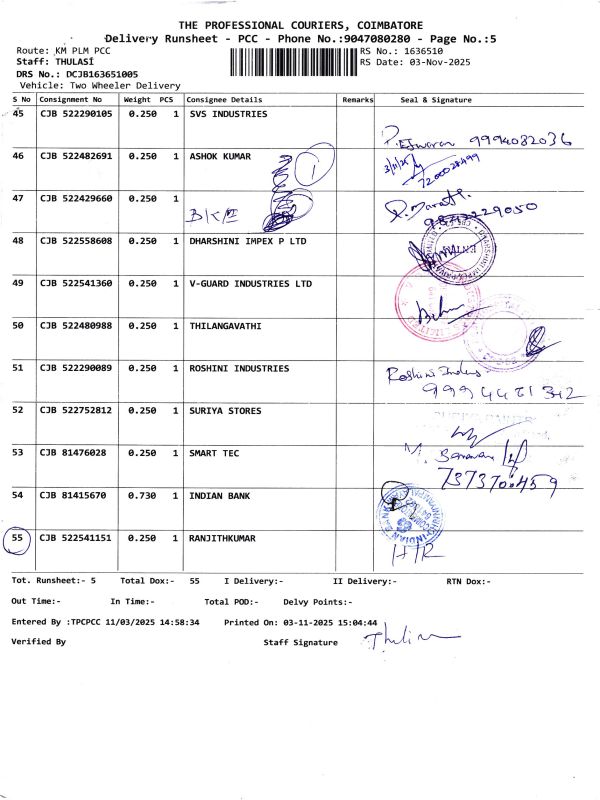 THE PROFESSIONAL COURIERS, COIMBATORE
Delivery Runsheet - PCC - Phone No.:9047080280 - Page No.:5
Route: KM PLM PCC RS No.: 1636510
Staff: THULASI RS Date: 03-Nov-2025
DRS No.: DCJB163651005
Vehicle: Two Wheeler Delivery
S No Consignment No Weight PCS Consignee Details Remarks Seal & Signature
45 CJB 522290105 0.250 1 SVS INDUSTRIES
P. Eswaran 9994082036
46 CJB 522482691 0.250 1 ASHOK KUMAR
1
3/11/25
7200028499
47 CJB 522429660 0.250 1
48 CJB 522558608 0.250 1 DHARSHINI IMPEX P LTD
49 CJB 522541360 0.250 1 V-GUARD INDUSTRIES LTD
50 CJB 522480988 0.250 1 THILANGAVATHI
51 CJB 522290089 0.250 1 ROSHINI INDUSTRIES
Roshini Indus
52 CJB 522752812 0.250 1 SURIYA STORES
53 CJB 81476028 0.250 1 SMART TEC
M. Saravanan
54 CJB 81415670 0.730 1 INDIAN BANK
INDIAN BANK
55 CJB 522541151 0.250 1 RANJITHKUMAR
Tot. Runsheet:- 5 Total Dox:- 55 I Delivery:- II Delivery:- RTN Dox:-
Out Time:- In Time:- Total POD:- Delvy Points:-
Entered By :TPCPCC 11/03/2025 14:58:34 Printed On: 03-11-2025 15:04:44
Verified By Staff Signature